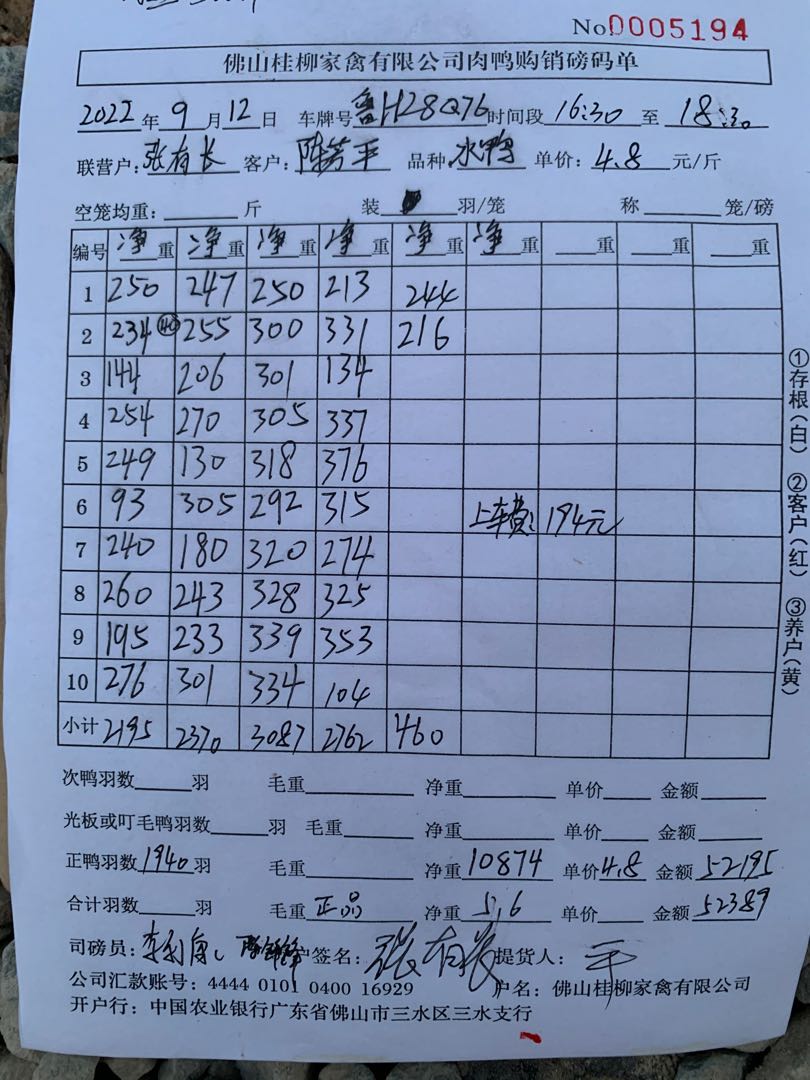 No 0005194
佛山桂柳家禽有限公司肉鸭购销磅码单
2022年 9 月 12 日 车牌号 鲁H28Q76 时间段 16:30 至 18:30
联营户: 张有长 客户: 陈芳平 品种 水鸭 单价: 4.8 元/斤
空笼均重: 斤 装 羽/笼 称 笼/磅
编号 净重 净重 净重 净重 净重 净重 重 重 重
1 250 247 250 213 244
2 234 255 300 331 216
3 144 206 301 134
4 254 270 305 337
5 249 130 318 376
6 93 305 292 315 上车费: 194元
7 240 180 320 274
8 260 243 328 325
9 195 233 339 353
10 276 301 334 104
小计 2195 2370 3087 2762 460
次鸭羽数 羽 毛重 净重 单价 金额
光板或叮毛鸭羽数 羽 毛重 净重 单价 金额
正鸭羽数 1940 羽 毛重 净重 10874 单价 4.8 金额 52195
合计羽数 羽 毛重 正品 净重 5.6 单价 金额 52389
司磅员: 户签名: 张有长 提货人: 平
公司汇款账号: 4444 0101 0400 16929 户名: 佛山桂柳家禽有限公司
开户行: 中国农业银行广东省佛山市三水区三水支行
①存根(白) ②客户(红) ③养户(黄)